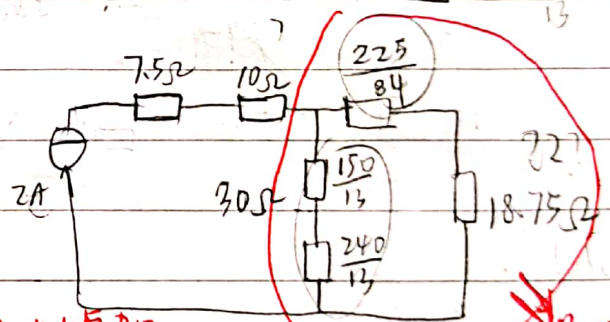 13
7.5Ω
10Ω
225
84
2A
30Ω
150
13
240
13
18.75Ω